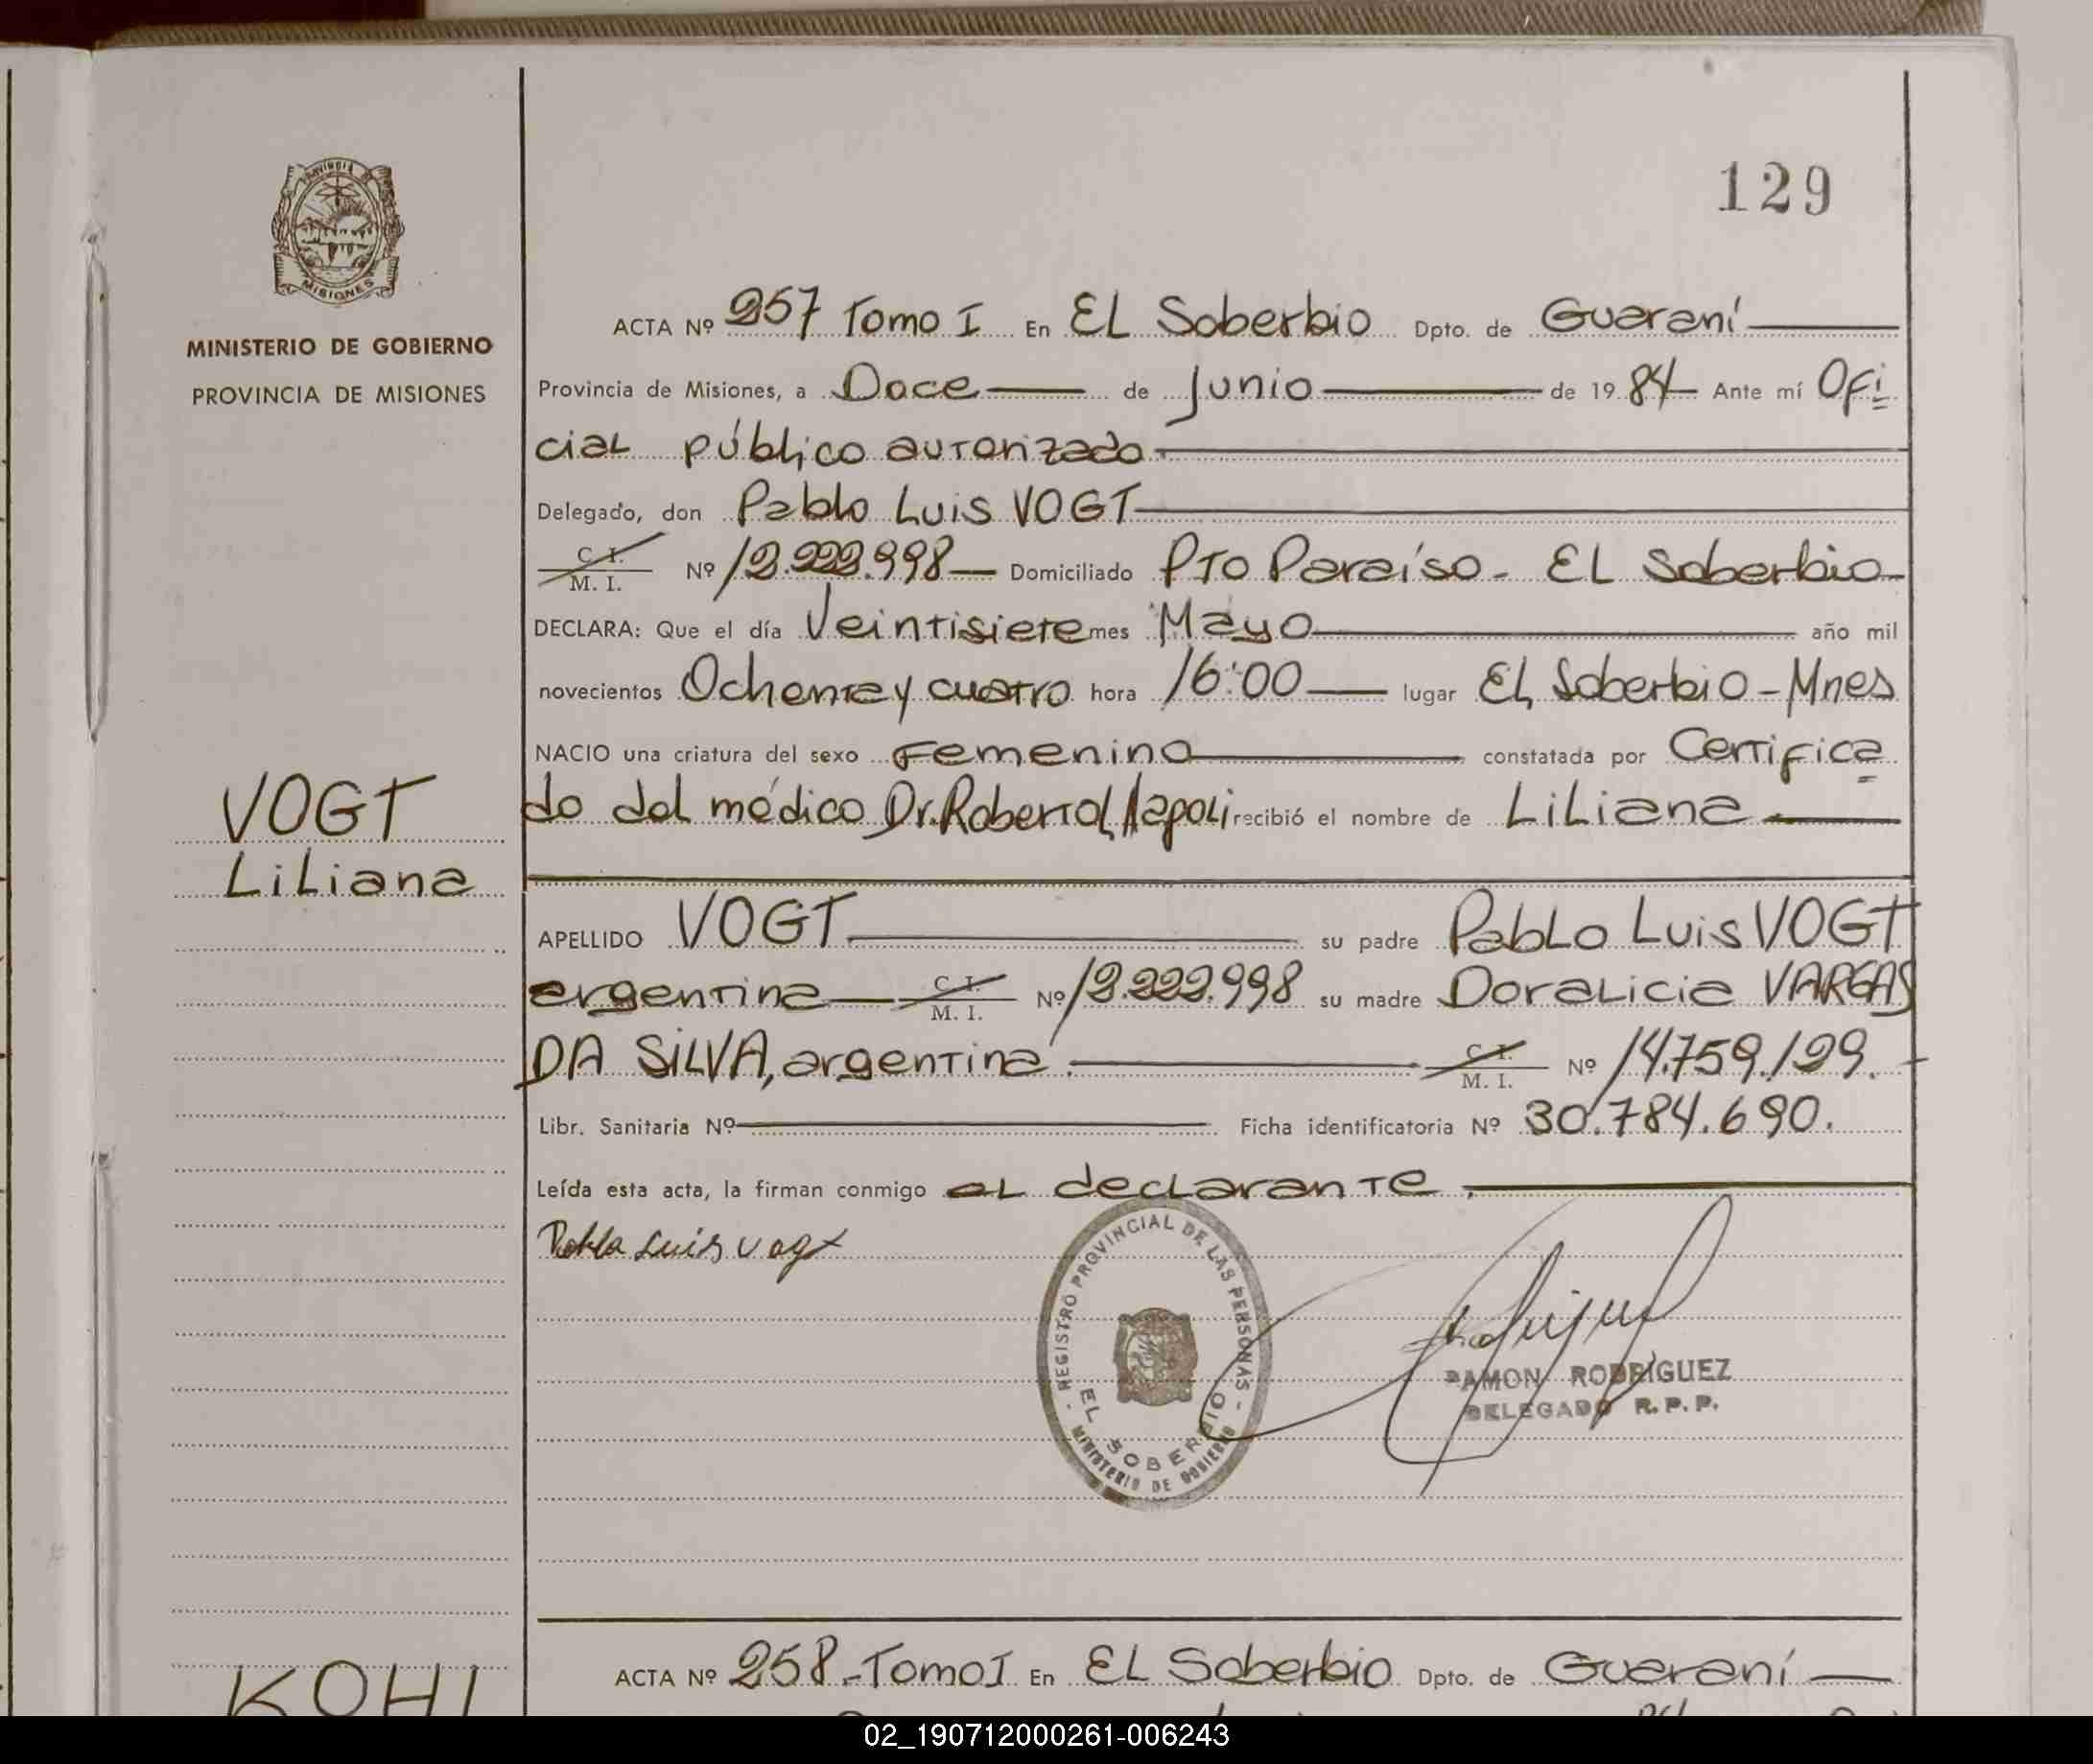 129
PROVINCIA DE
MISIONES
MINISTERIO DE GOBIERNO
PROVINCIA DE MISIONES
ACTA Nº 257 Tomo I En EL Soberbio Dpto. de Guaraní
Provincia de Misiones, a Doce de Junio de 1984 Ante mí Ofi
cial público autorizado
Delegado, don Pablo Luis VOGT
C. I.
M. I. Nº 12.222.998 Domiciliado Pto Paraíso - EL Soberbio
DECLARA: Que el día Veintisiete mes Mayo año mil
novecientos Ochenta y cuatro hora 16:00 lugar EL Soberbio - Mnes
NACIO una criatura del sexo Femenino constatada por Certifica
do del médico Dr. Roberto L. recibió el nombre de Liliana
VOGT
Liliana
APELLIDO VOGT su padre Pablo Luis VOGT
argentina C. I. M. I. Nº 12.222.998 su madre Doralicia VARGAS
DA SILVA, argentina. C. I. M. I. Nº 14.759.129.
Libr. Sanitaria Nº Ficha identificatoria Nº 30.784.690.
Leída esta acta, la firman conmigo el declarante.
Pablo Luis Vogt
- REGISTRO PROVINCIAL DE LAS PERSONAS -
EL SOBERBIO
MINISTERIO DE GOBIERNO
RAMON RODRIGUEZ
DELEGADO R. P. P.
ACTA Nº 258.- Tomo I En EL Soberbio Dpto. de Guaraní
02_190712000261-006243